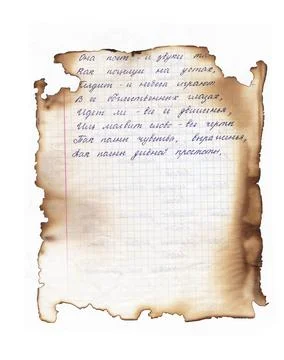 Она поет - и звуки та
Как поцелуи на устах,
Глядит - и небеса играют
В ее божественных глазах,
Идет ли - все ее движенья,
Иль молвит слово - все черты
Так полны чувства, выраженья,
Так полны дивной простоты.